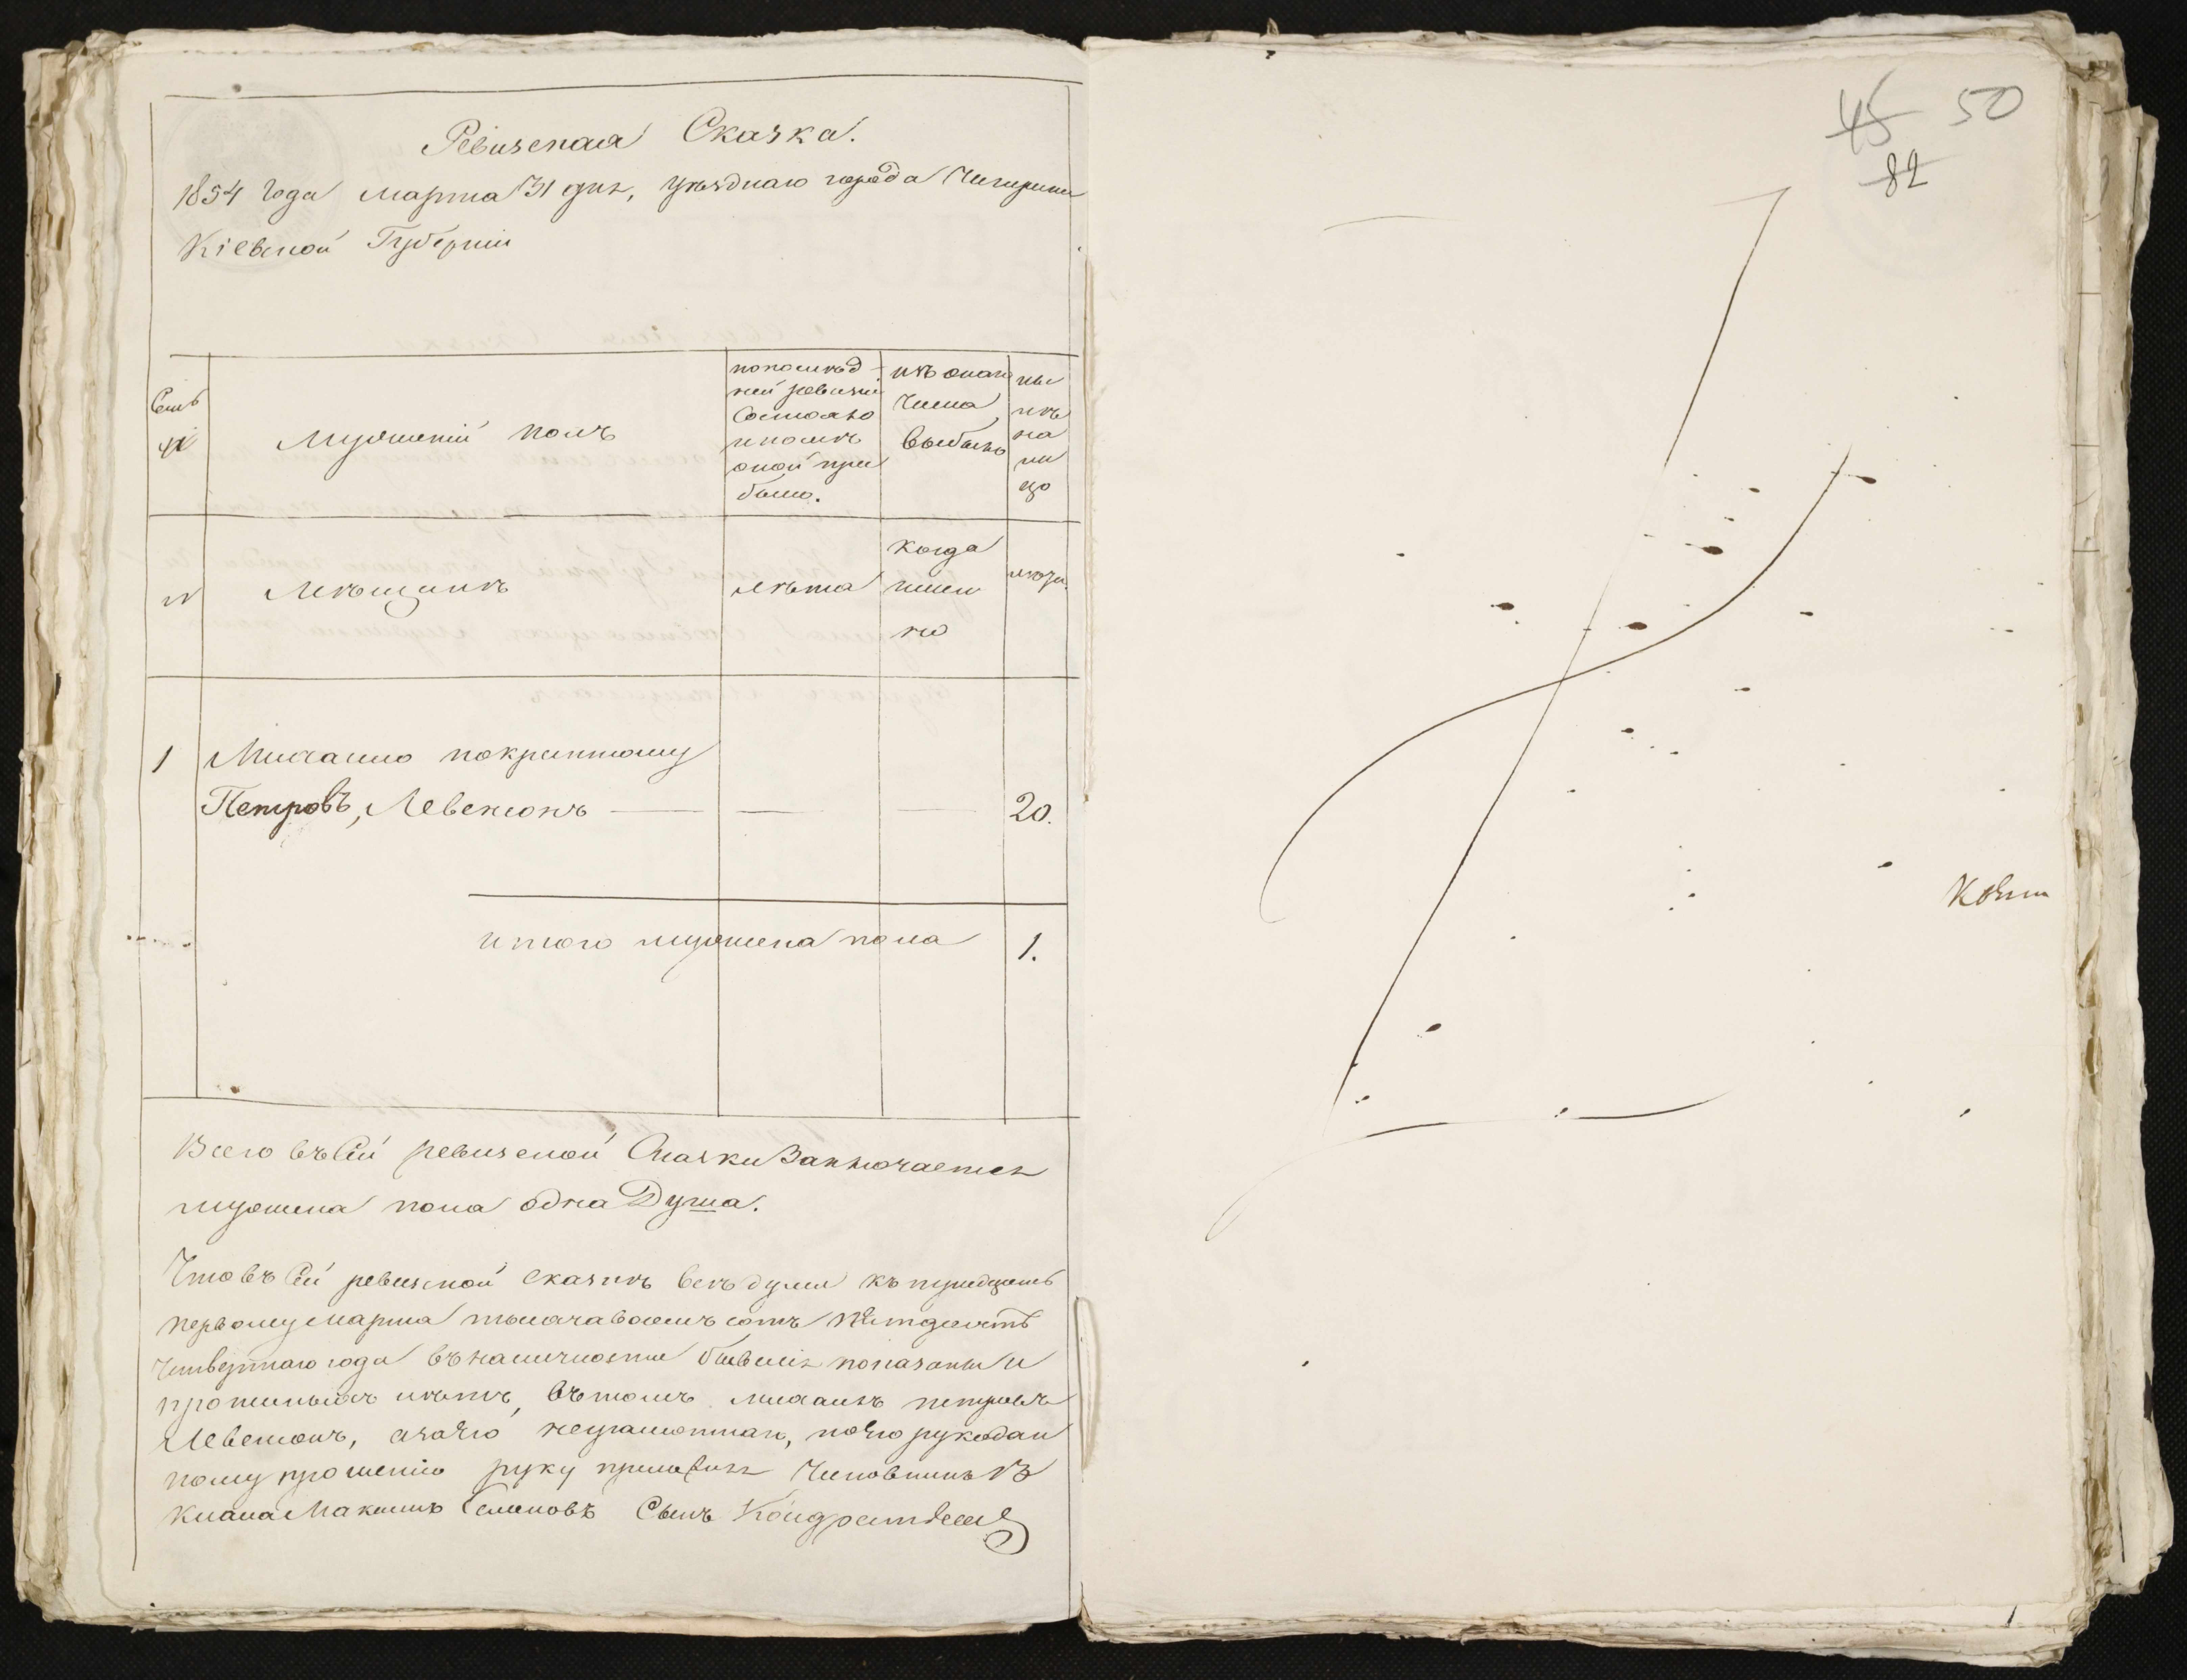 Ревизская Сказка.
1854 года марта 31 дня, уѣзднаго города Чигирина
Кіевской Губерніи
Семьи
№
Мужескій полъ
по послѣд-
ней ревизіи
Состояло
и послѣ
оной при
было.
изъ онаго
числа
выбыло
ны
нѣ
на
ли
цо
№
Мѣщанъ
лѣта
когда
имен
но
лѣта.
1
Михаило по крестному
Петровъ, Левенсонъ
20.
итого мужеска пола
1.
Всего въ Сей ревизской Сказки Заключается
мужеска пола одна Душа.
Что въ Сей ревизской сказкѣ всѣ души къ тридцать
первому марта тысяча восемь сотъ пятдесятъ
четвертаго года въ наличности бывшія показаны и
прописныхъ нѣтъ, въ томъ Михаилъ Петровъ
Левенсонъ, а за его неграмотнаго, по его рукодан
ному прошенію руку приложилъ Чиновникъ
Максимъ Семеновъ Сынъ
45 50
82